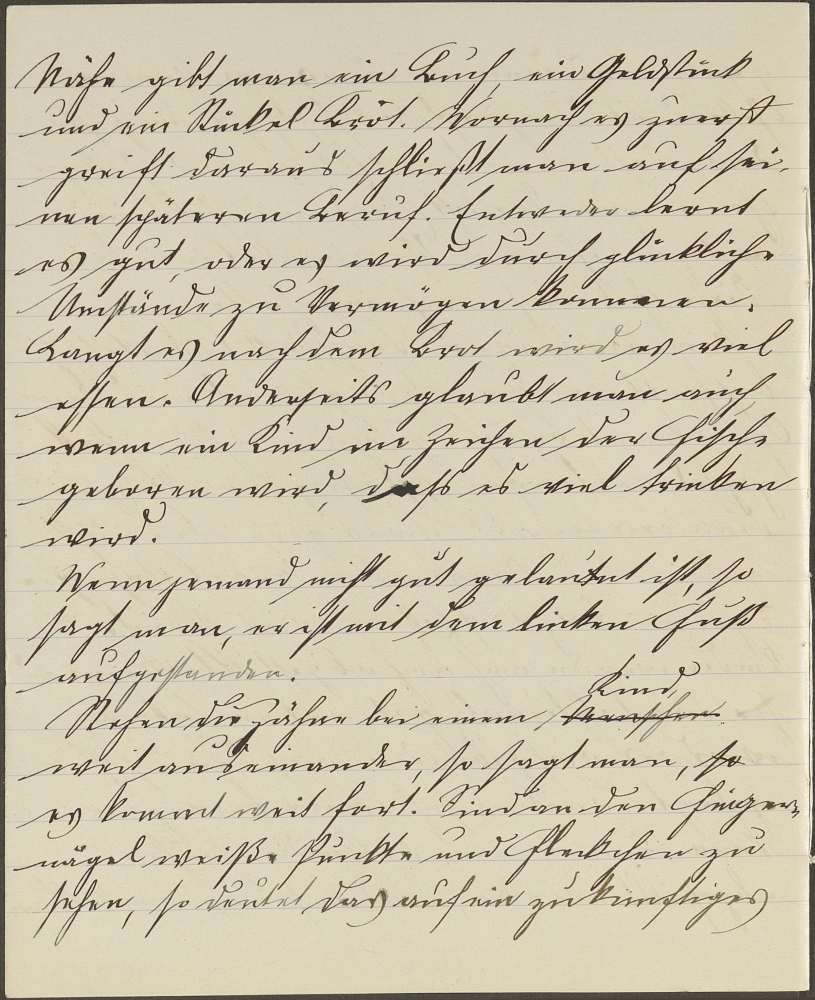 Nähe gibt man ein Buch, ein Geldstück
und ein Stückel Brot. Wornach es zuerst
greift daraus schließt man auf sei-
nen späteren Beruf. Entweder lernt
es gut, oder es wird durch glückliche
Umstände zu Vermögen kommen.
Langt es nach dem Brot wird es viel
essen. Anderseits glaubt man auch,
wenn ein Kind im Zeichen der Fische
geboren wird, dass es viel trinken
wird.
Wenn jemand nicht gut gelaunt ist, so
sagt man, er ist mit dem linken Fuß
aufgestanden.
Stehen die Zähne bei einem Menschen Kind,
weit auseinander, so sagt man, so
es kommt weit fort. Sind an den Finger-
nägel weiße Punkte und Fleckchen zu
sehen, so deutet das auf ein zukünftiges